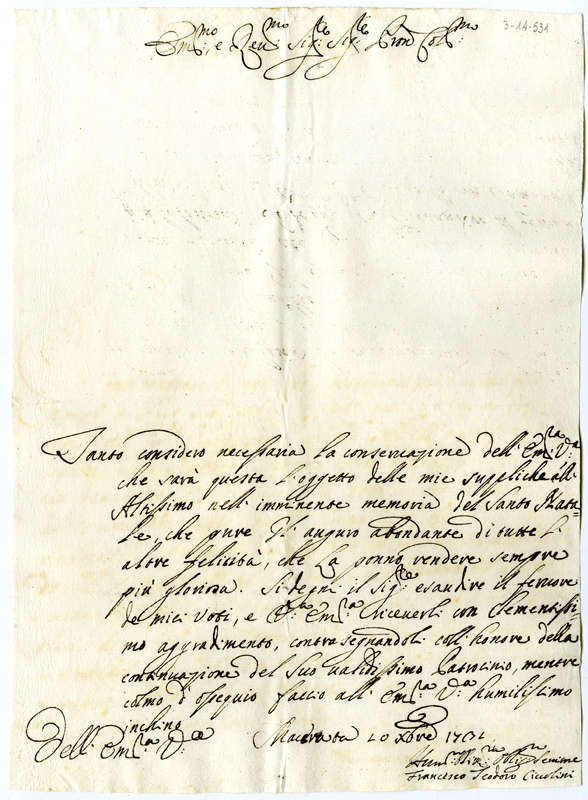 3-14-531
Em:mo, e Reu:mo Sig:re Sig:re Pron Col:mo
Tanto considero necessaria la conseruazione dell' Em:za V:a
che sarà questa l'oggetto delle mie suppliche all'
Altissimo nell' imminente memoria del Santo Nata=
le, che pure Gli auguro abondante di tutte l'
altre felicità, che La ponno rendere sempre
più gloriosa. Si degni il Sig:re esaudire il feruore
de miei Voti, e V:ra Em:za riceuerli con clementissi=
mo aggradimento, contrasegnandoli coll' honore della
continuazione del Suo validissimo Patrocinio, mentre
colmo d'ossequio faccio all' Em:za V:a humilissimo
inchino
Dell' Em:za V:a Macerata 20 Xbre 1731
Francesco Teodoro Ciccolini